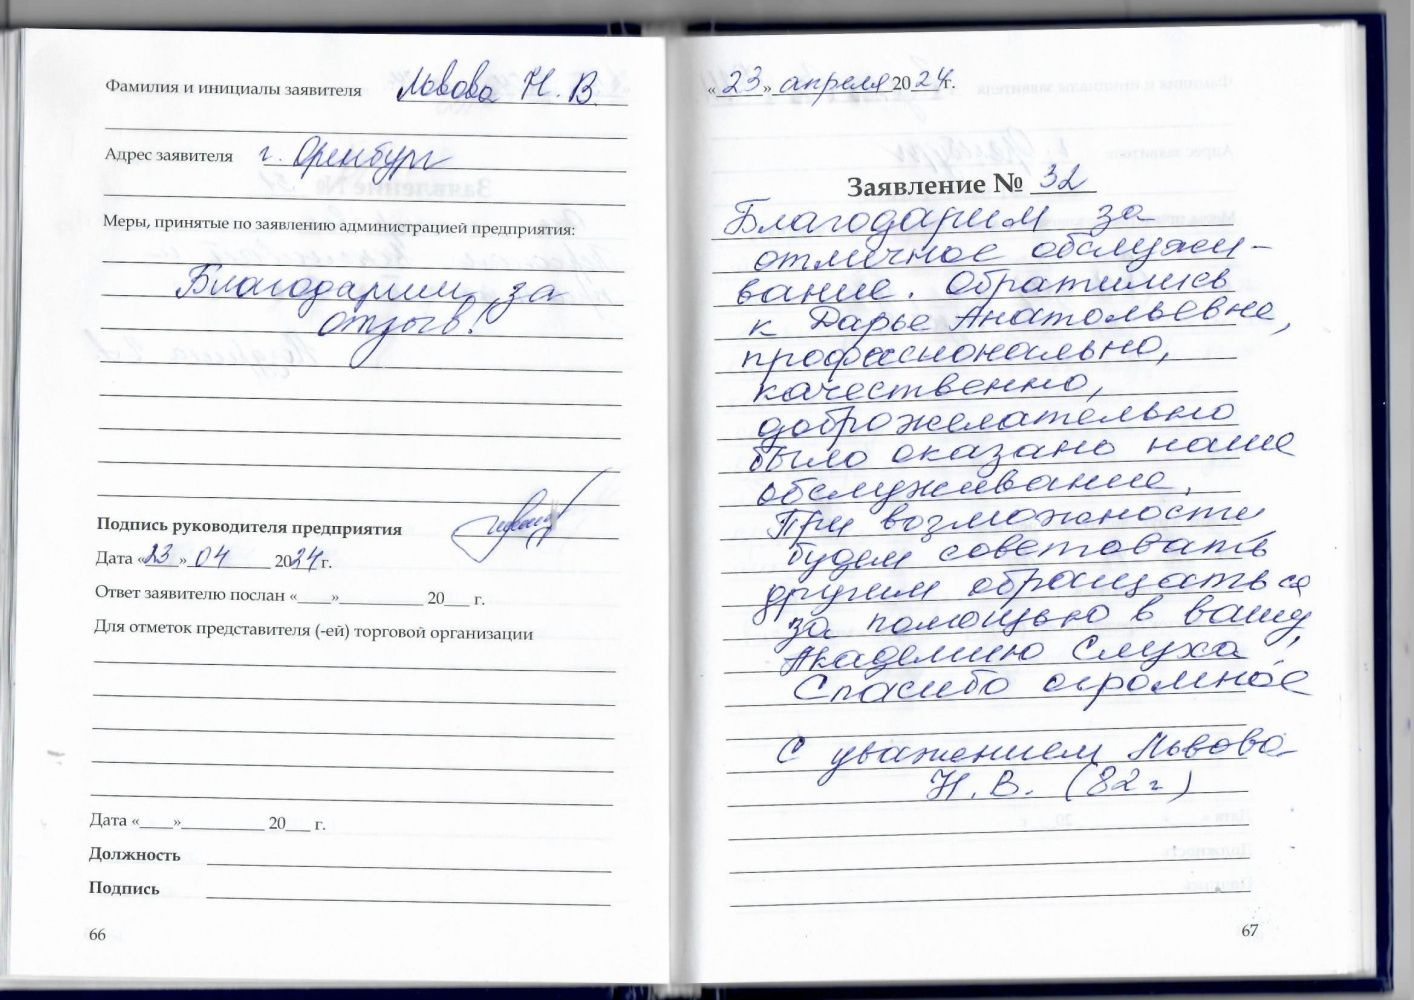 Фамилия и инициалы заявителя Львова Н. В.
Адрес заявителя г. Оренбург
Меры, принятые по заявлению администрацией предприятия:
Благодарим за
отзыв!
Подпись руководителя предприятия
Дата «23» 04 2024 г.
Ответ заявителю послан «____»__________ 20___ г.
Для отметок представителя (-ей) торговой организации
Дата «____»__________ 20___ г.
Должность
Подпись
66
«23» апреля 2024г.
Заявление № 32
Благодарим за
отличное обслужи-
вание. Обратились
к Дарье Анатольевне,
профессионально,
качественно,
доброжелательно
было оказано наше
обслуживание.
При возможности
будем советовать
другим обращаться
за помощью в вашу
Академию Слуха,
Спасибо огромное
С уважением Львова
Н. В. (82 г)
67